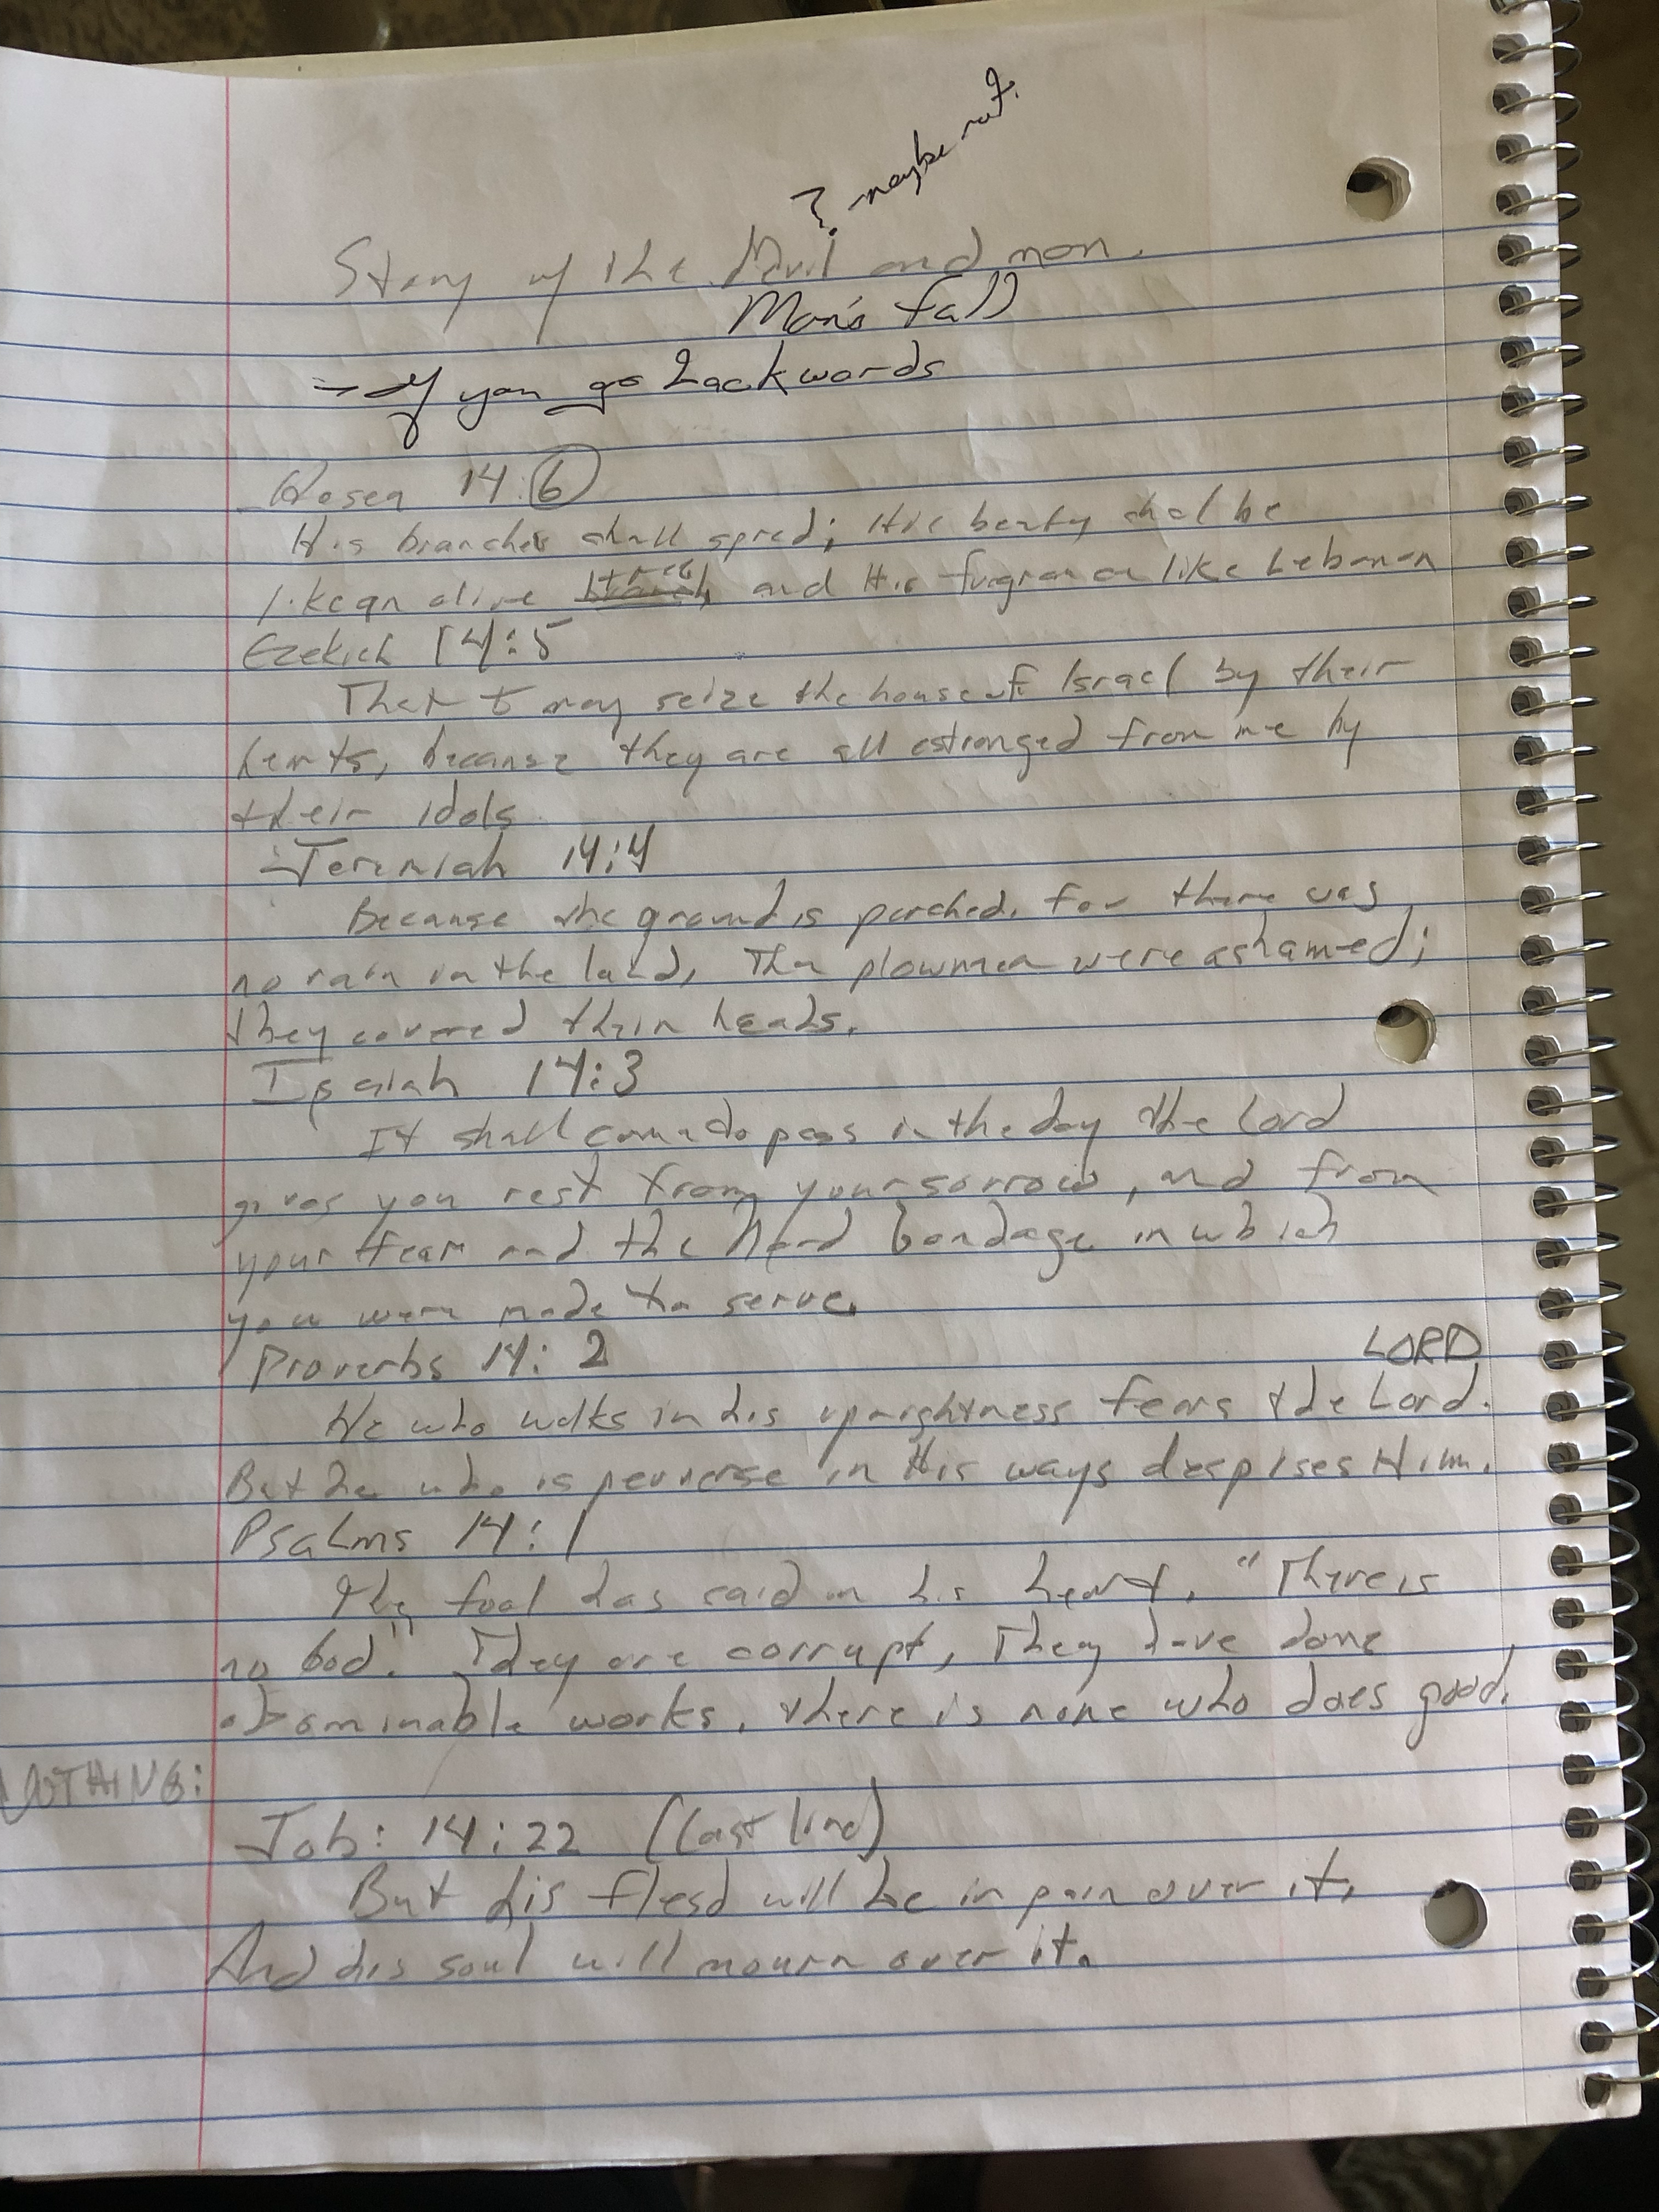 ? - maybe not.
Story of the Devil and man.
Man's fall
→ If you go backwords
Hosea 14:6
His branches shall spred; His beaty shal be
like an olive tree, and His fragranc like Lebanon
Ezekieh 14:5
That I may seize the house of Israel by their
herts, because they are all estranged from me by
their idols
- Jeremiah 14:4
Because the ground is parched, for there was
no rain in the land, The plowmen were ashamed;
they covered their heads.
Isaiah 14:3
It shall come to pass in the day the Lord
gives you rest from your sorrow, and from
your fear and the hard bondage in which
you were made to serve.
Proverbs 14:2
LORD
He who walks in his uprightness fears the Lord.
But he who is perverse in His ways despises Him.
Psalms 14:1
The fool has said in his heart, "There is
no God." They are corrupt, They have done
abominable works, there is none who does good.
NOTHING:
Job: 14:22 (last line)
But his flesh will be in pain over it,
And his soul will mourn over it.